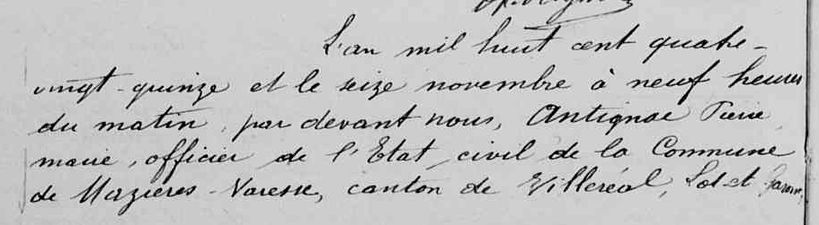 L'an mil huit cent quatre-
vingt-quinze et le seize novembre à neuf heures
du matin, par devant nous, Antignac Pierre
maire, officier de l'Etat civil de la Commune
de Mazières-Naresse, canton de Villeréal, Lot-et-Garonne,